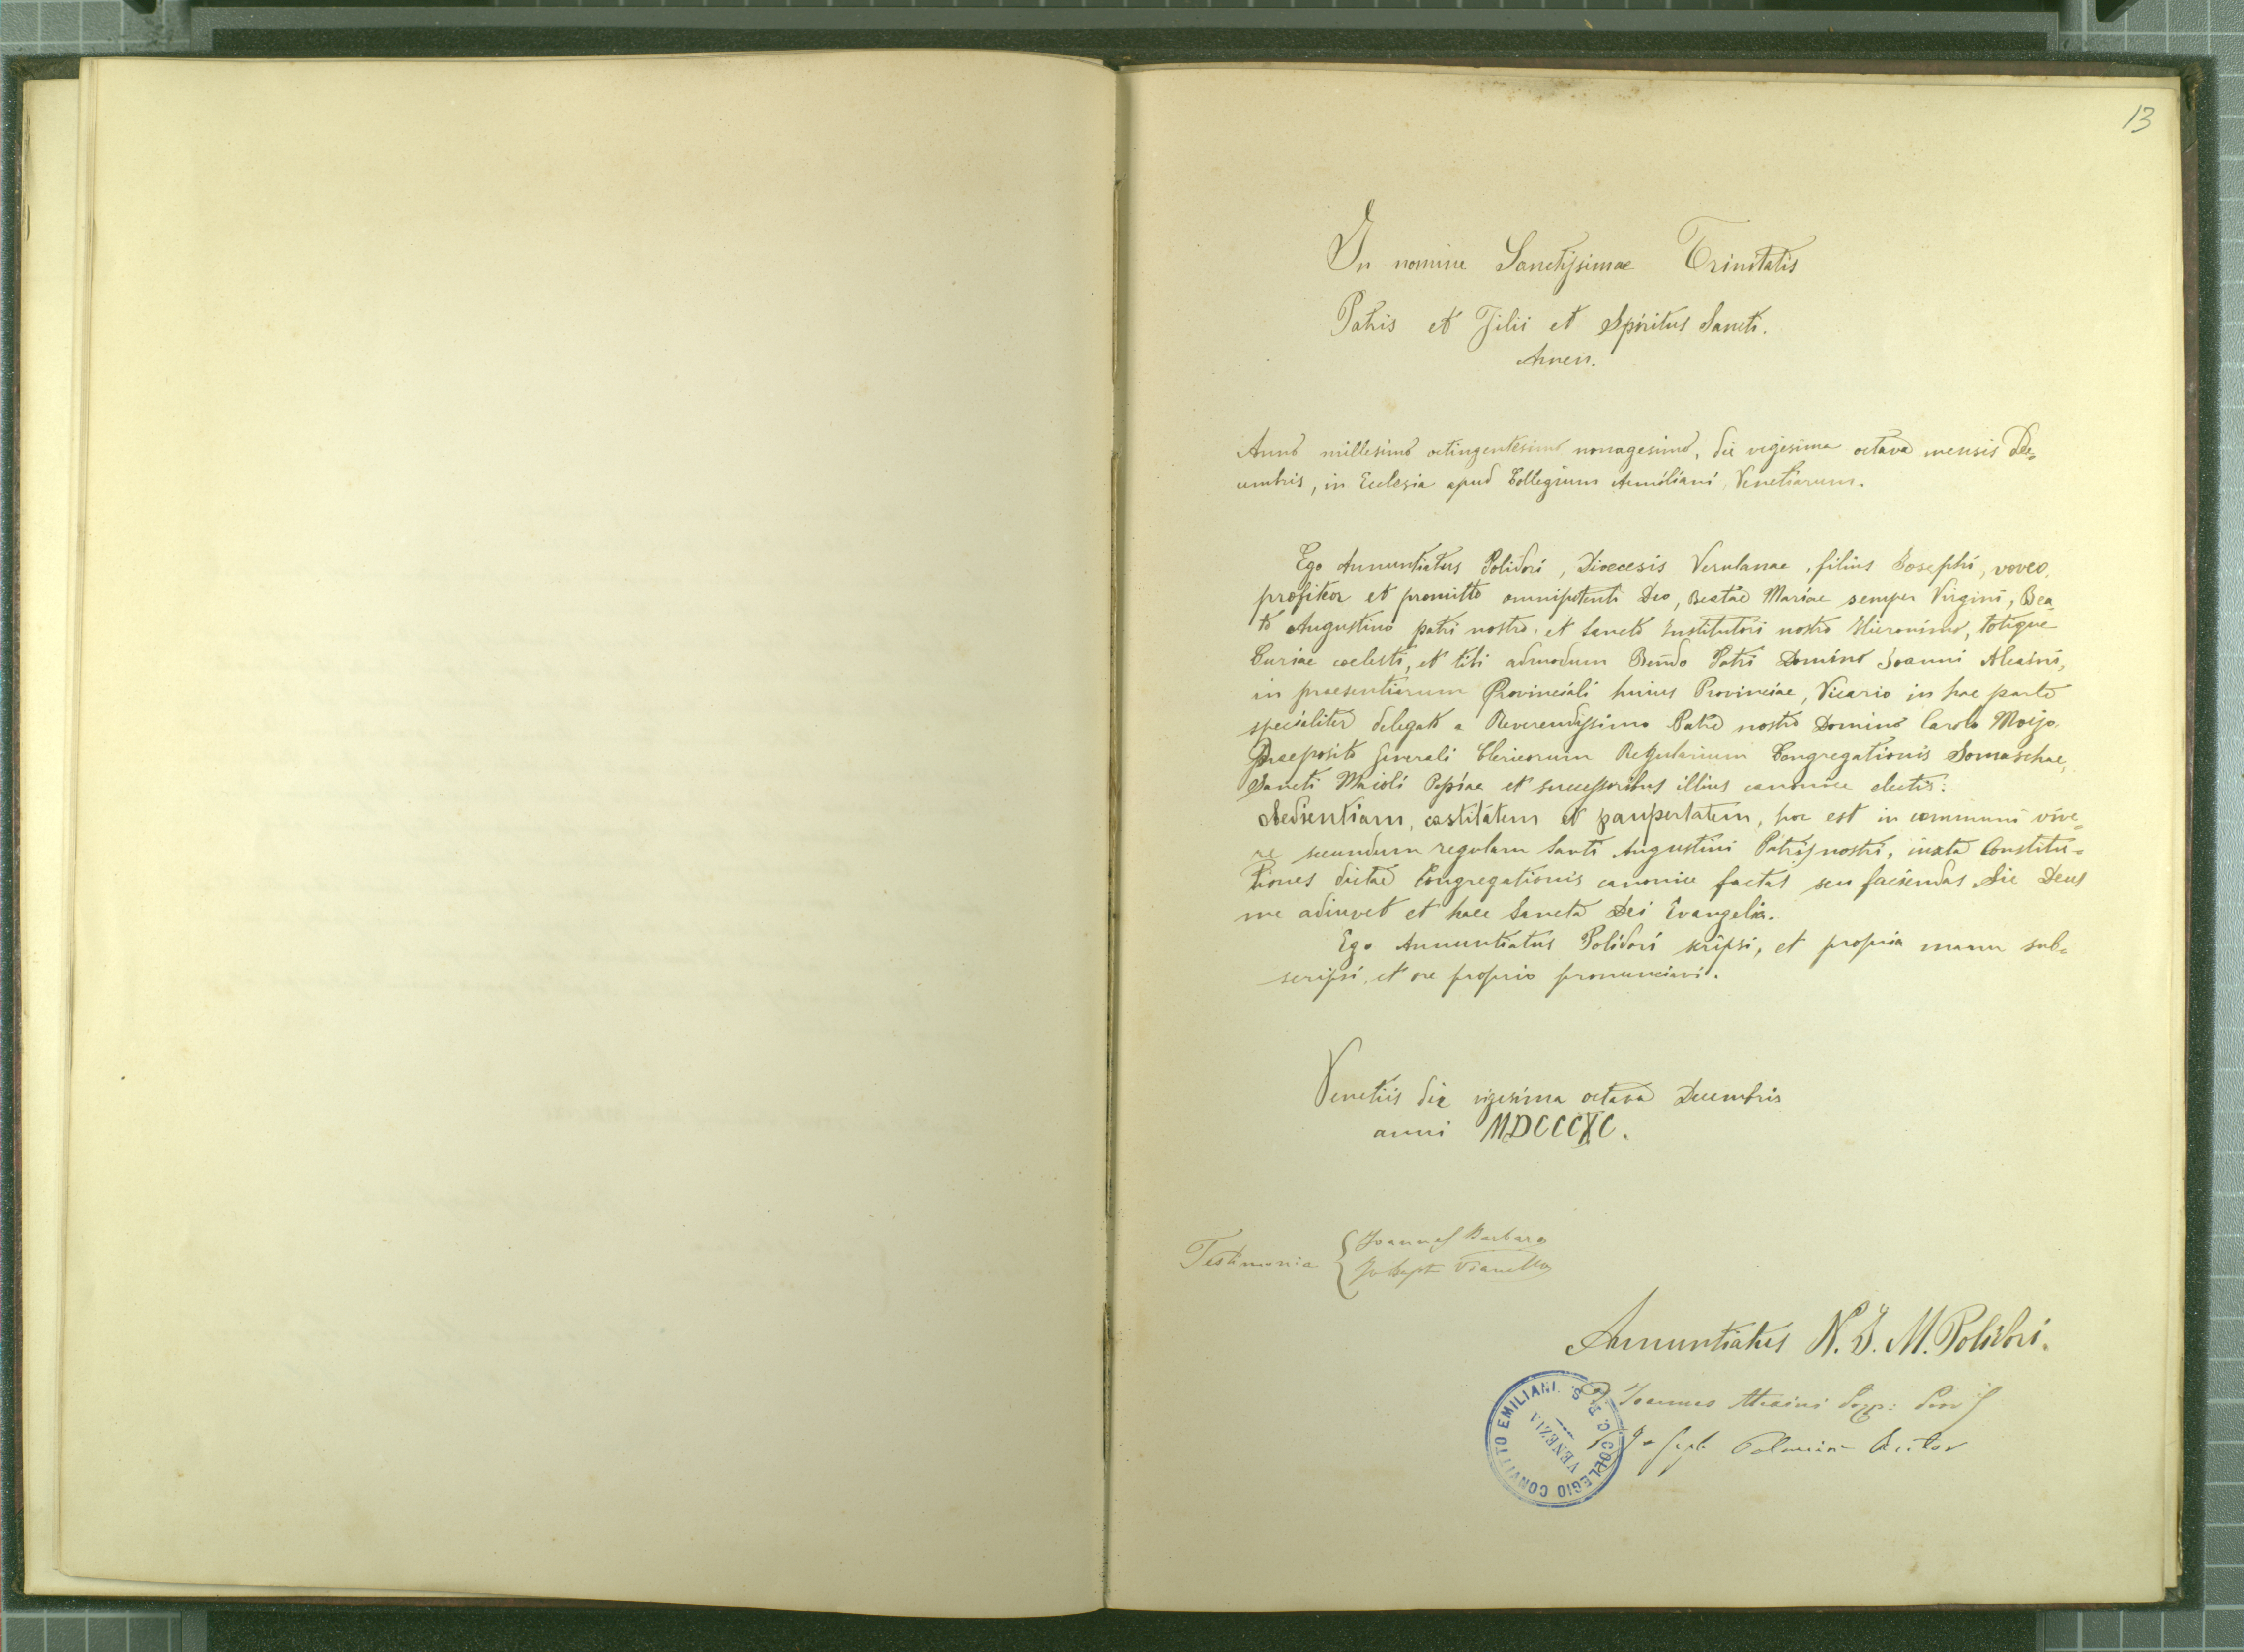 13
In nomine Sanctissimae Trinitatis
Patris et Filii et Spiritus Sancti.
Amen.
Anno millesimo octingentesimo nonagesimo, die vigesima octava mensis De=
cembris, in Ecclesia apud Collegium Aemiliani Venetiarum.
Ego Annuntiatus Polidori, Dioecesis Verulanae, filius Josephi, voveo,
profiteor et promitto omnipotenti Deo, Beatae Mariae semper Virgini, Bea
to Augustino patri nostro, et Sancto Institutori nostro Hieronimo, totique
Curiae coelesti, et tibi admodum Rendo Patri Domino Joanni Alcaini,
in praesentiarum Provinciali huius Provinciae, Vicario in hac parte
specialiter delegato a Reverendissimo Patre nostro Domino Carolo Moizo
Praeposito Generali Clericorum Regularium Congregationis Somaschae,
Sancti Maioli Papiae et successoribus illius canonice electis:
obedientiam, castitatem et paupertatem, hoc est in communi vive=
re secundum regulam Santi Augustini Patris nostri, iuxta Constitu=
tiones dictae Congregationis canonice factas seu faciendas. Sic Deus
me adiuvet et haec Sancta Dei Evangelia.
Ego Annuntiatus Polidori scripsi, et propria manu sub=
scripsi, et ore proprio pronunciavi.
Venetiis die vigesima octava Decembris
anni MDCCCXC.
Testimonia { Joannes Barbaro
Joseph Vianello
Annuntiatus N. J. M. Polidori.
Joannes Alcaini
Joseph Palmieri Rector
COLLEGIO CONVITTO EMILIANI. P. C. R. S.
VENEZIA